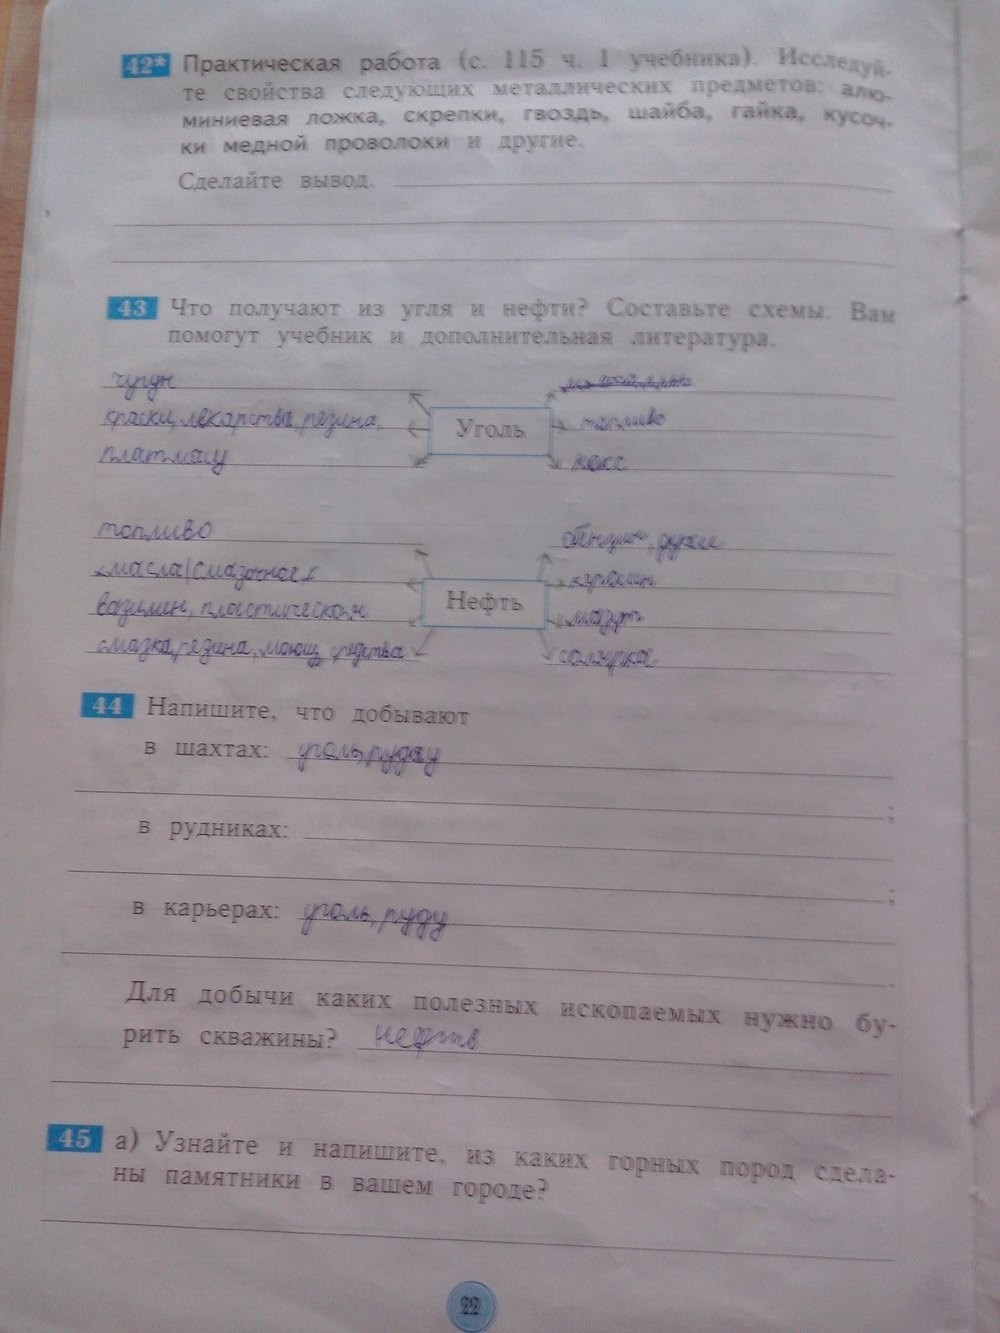 42* Практическая работа (с. 115 ч. 1 учебника). Исследуй-
те свойства следующих металлических предметов: алю-
миниевая ложка, скрепки, гвоздь, шайба, гайка, кусоч-
ки медной проволоки и другие.
Сделайте вывод.
43 Что получают из угля и нефти? Составьте схемы. Вам
помогут учебник и дополнительная литература.
чугун
краски, лекарства, резина,
топливо
Уголь
платмасу
кокс
топливо
бензин, духи
масла (смазочное)
керосин
Нефть
вазилин, пластическая
мазут
смазка, резина, моющ средства
солярка
44 Напишите, что добывают
в шахтах: уголь, руду
;
в рудниках:
;
в карьерах: уголь, руду
.
Для добычи каких полезных ископаемых нужно бу-
рить скважины? нефть
45 а) Узнайте и напишите, из каких горных пород сдела-
ны памятники в вашем городе?
22